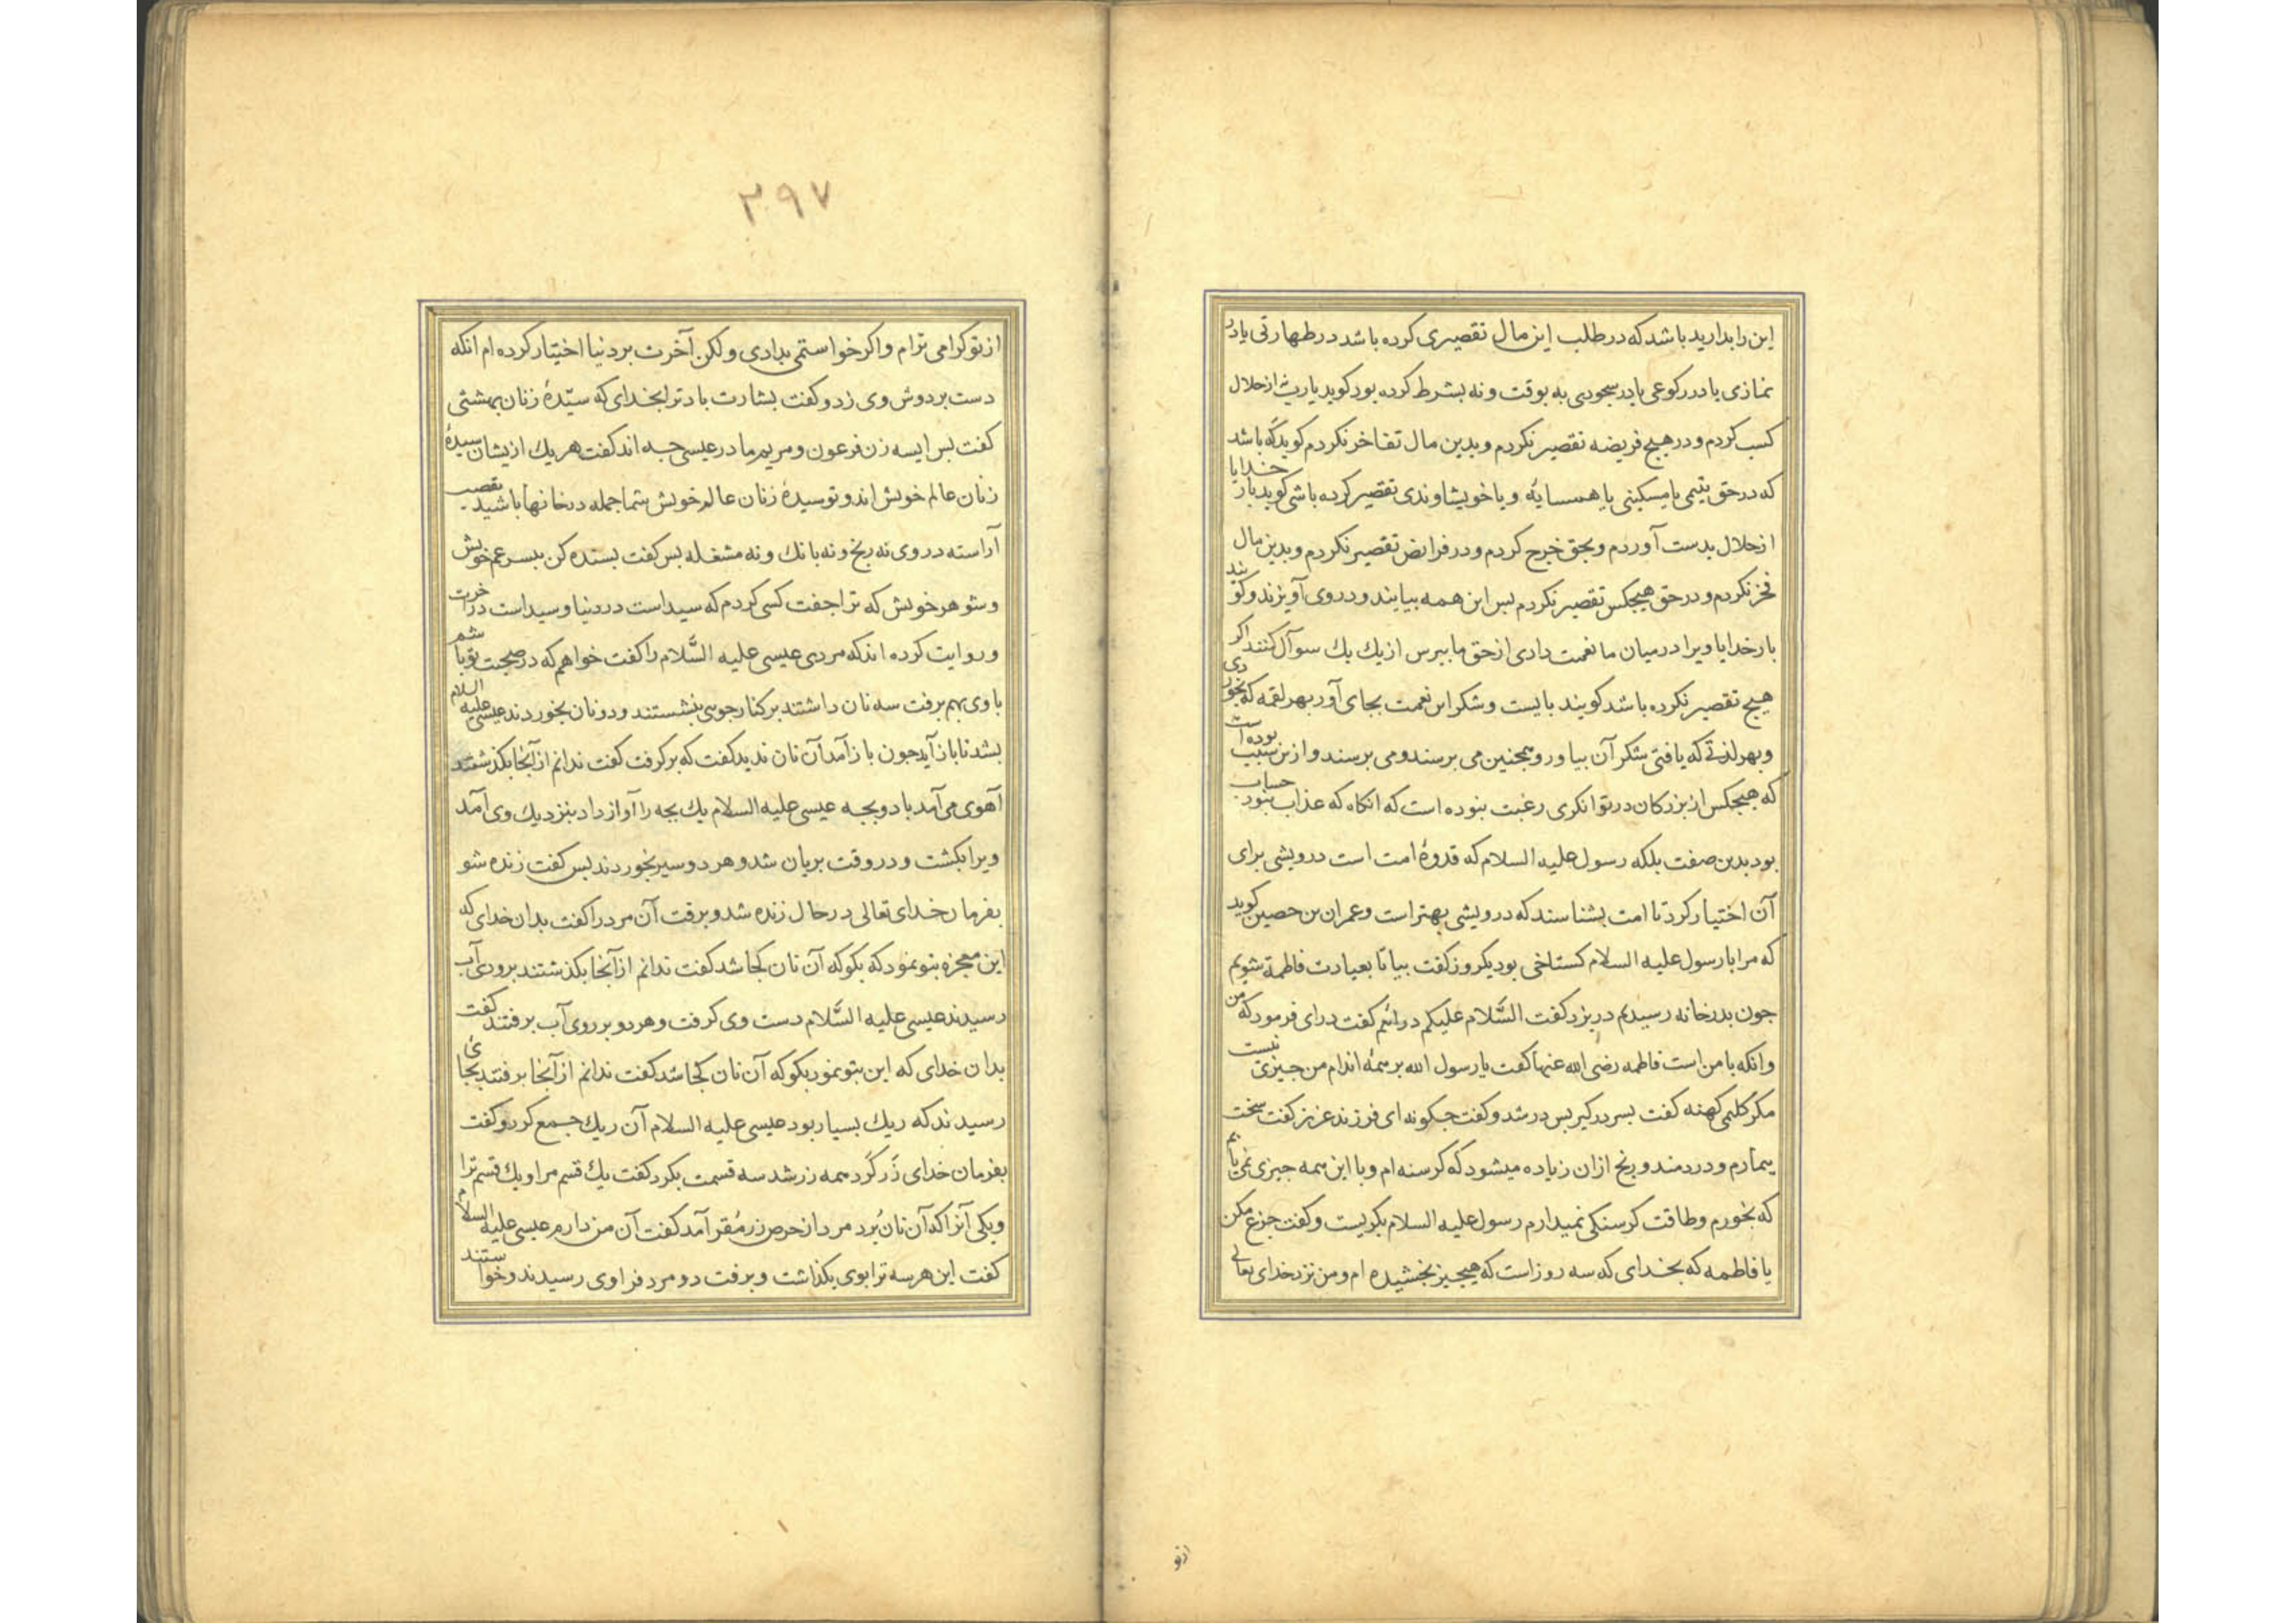 این را بدارید باشد که در طلب این مال تقصیری کرده باشد در طهارتی یا در
نمازی یا در رکوعی یا در سجودی نه بوقت و نه بشرط کرده بود کوید یا رب از حلال
کسب کردم و در هیچ فریضه تقصیر نکردم و بدین مال تفاخر نکردم کوید که باشد
که در حق یتیمی یا مسکینی یا همسایه و یا خویشاوندی تقصیر کرده باشی کوید بار خدایا
از حلال بدست آوردم و بحق خرج کردم و در فرایض تقصیر نکردم و بدین مال
فخر نکردم و در حق هیچکس تقصیر نکردم بس این همه بیایند و در وی آویزند و کویند
بار خدایا ویرا در میان ما نعمت دادی از حق ما ببرس از یك یك سوآل کنند اکر
هیچ تقصیر نکرده باشد کویند بایست و شکر این نعمت بجای آور بهر لقمه که بخوردی
و بهر لذتی که یافتی شکر آن بیاور و همجنین می برسند و می برسند و ازین سبب بوده است
که هیجکس از بزرکان در توانکری رغبت نبوده است که انکاه که عذاب نبود حساب
بود بدین صفت بلکه رسول علیه السلام که قدوهٔ امت است درویشی برای
آن اختیار کرد تا امت بشناسند که درویشی بهتر است و عمران بن حصین کوید
که مرا با رسول علیه السلام کستاخی بود یکروز کفت بیا تا بعیادت فاطمة شویم
جون بدر خانه رسیدیم در بزد کفت السَّلام علیکم درائم کفت درای فرمود که من
و انکه با من است فاطمه رضی الله عنها کفت یا رسول الله بر همهٔ اندام من جیزی نیست
مکر کلیمی کهنه کفت بسر درکیر بس در شد و کفت جکونه ای فرزند عزیز کفت سخت
بیمارم و دردمند و رنج ازان زیاده میشود که کرسنه ام و با این همه جیزی نمی یابم
که بخورم و طاقت کرسنکی نمیدارم رسول علیه السلام بکریست و کفت جزع مکن
یا فاطمه که بخدای که سه روز است که هیچ جیز نجشیده ام و من نزد خدای تعالی
ازتو
۳۹۷
از تو کرامی ترام و اکر خواستمی بدادی ولکن آخرت بر دنیا اختیار کرده ام انکه
دست بر دوش وی زد و کفت بشارت باد ترا بخدای که سیّدهٔ زنان بهشتی
کفت بس ایسه زن فرعون و مریم مادر عیسی جه اند کفت هر یك ازیشان سیدهٔ
زنان عالم خویش اند و تو سیدهٔ زنان عالم خویش شما جمله در خانها باشید بقصب
آراسته در وی نه رنج و نه بانك و نه مشغله بس کفت بسنده کن ببسر عم خویش
و شوهر خویش که ترا جفت کسی کردم که سید است در دنیا و سید است در آخرت
و روایت کرده اند که مردی عیسی علیه السَّلام را کفت خواهم که در صحبت تو باشم
با وی بهم برفت سه نان داشتند بر کنار جوی بنشستند و دو نان بخوردند عیسی علیه السلام
بشد تا باز آید جون باز آمد آن نان ندید کفت که برکرفت کفت ندانم از آنجا بکذشتند
آهوی می آمد با دو بجه عیسی علیه السلام یك بجه را آواز داد بنزدیك وی آمد
ویرا بکشت و در وقت بریان شد و هر دو سیر بخوردند بس کفت زنده شو
بفرمان خدای تعالی در حال زنده شد و برفت آن مرد را کفت بدان خدای که
این معجزه بتو نمود که بکو که آن نان کجا شد کفت ندانم از آنجا بکذشتند برودی آب
رسیدند عیسی علیه السَّلام دست وی کرفت و هر دو بر روی آب برفتند کفت
بدان خدای که این بتو نمود بکو که آن نان کجا شد کفت ندانم از آنجا برفتند بجائی
رسیدند که ریك بسیار بود عیسی علیه السلام آن ریك جمع کرد و کفت
بفرمان خدای زر کرد همه زر شد سه قسمت بکرد کفت یك قسم مرا و یك قسم ترا
و یکی آنرا که آن نان بُرد مرد از حرص زر مُقر آمد کفت آن من دارم عیسی علیه السلام
کفت این هر سه ترا بوی بکذاشت و برفت دو مرد فرا وی رسیدند و خواستند